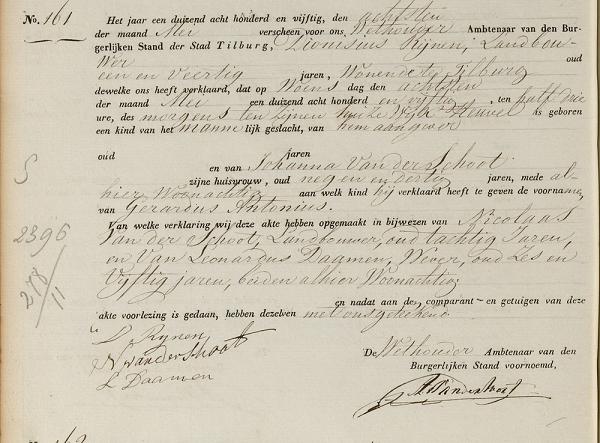 No. 161
Het jaar een duizend acht honderd en vijftig, den achtsten
der maand Mei verscheen voor ons, Wethouder Ambtenaar van den Bur-
gerlijken Stand der Stad Tilburg, Dionisius Rijnen, Landbou-
wer oud
een en Veertig jaren, Wonende te Tilburg
dewelke ons heeft verklaard, dat op Woens dag den achtsten
der maand Mei een duizend acht honderd en vijftig, ten half drie
ure, des morgens ten zijnen huize Wijk Heuvel is geboren
een kind van het manne lijk geslacht, van hem aangever
oud jaren
en van Johanna Van der Schoot
zijne huisvrouw, oud negen en dertig jaren, mede al-
hier Woonachtig aan welk kind hij verklaard heeft te geven de voorname,
van Gerardus Antonius.
Van welke verklaring wij deze akte hebben opgemaakt in bijwezen van Nicolaas
Van der Schoot, Landbouwer, oud tachtig Jaren,
en Van Leonardus Daamen, Wever, oud Zes en
Vijftig jaren, beiden alhier Woonachtig
en nadat aan de comparant en getuigen van deze
akte voorlezing is gedaan, hebben dezelven met ons geteekend.
D Rijnen
N van der schoot
L Daamen
De Wethouder Ambtenaar van den
Burgerlijken Stand voornoemd,
S
2396
278/11